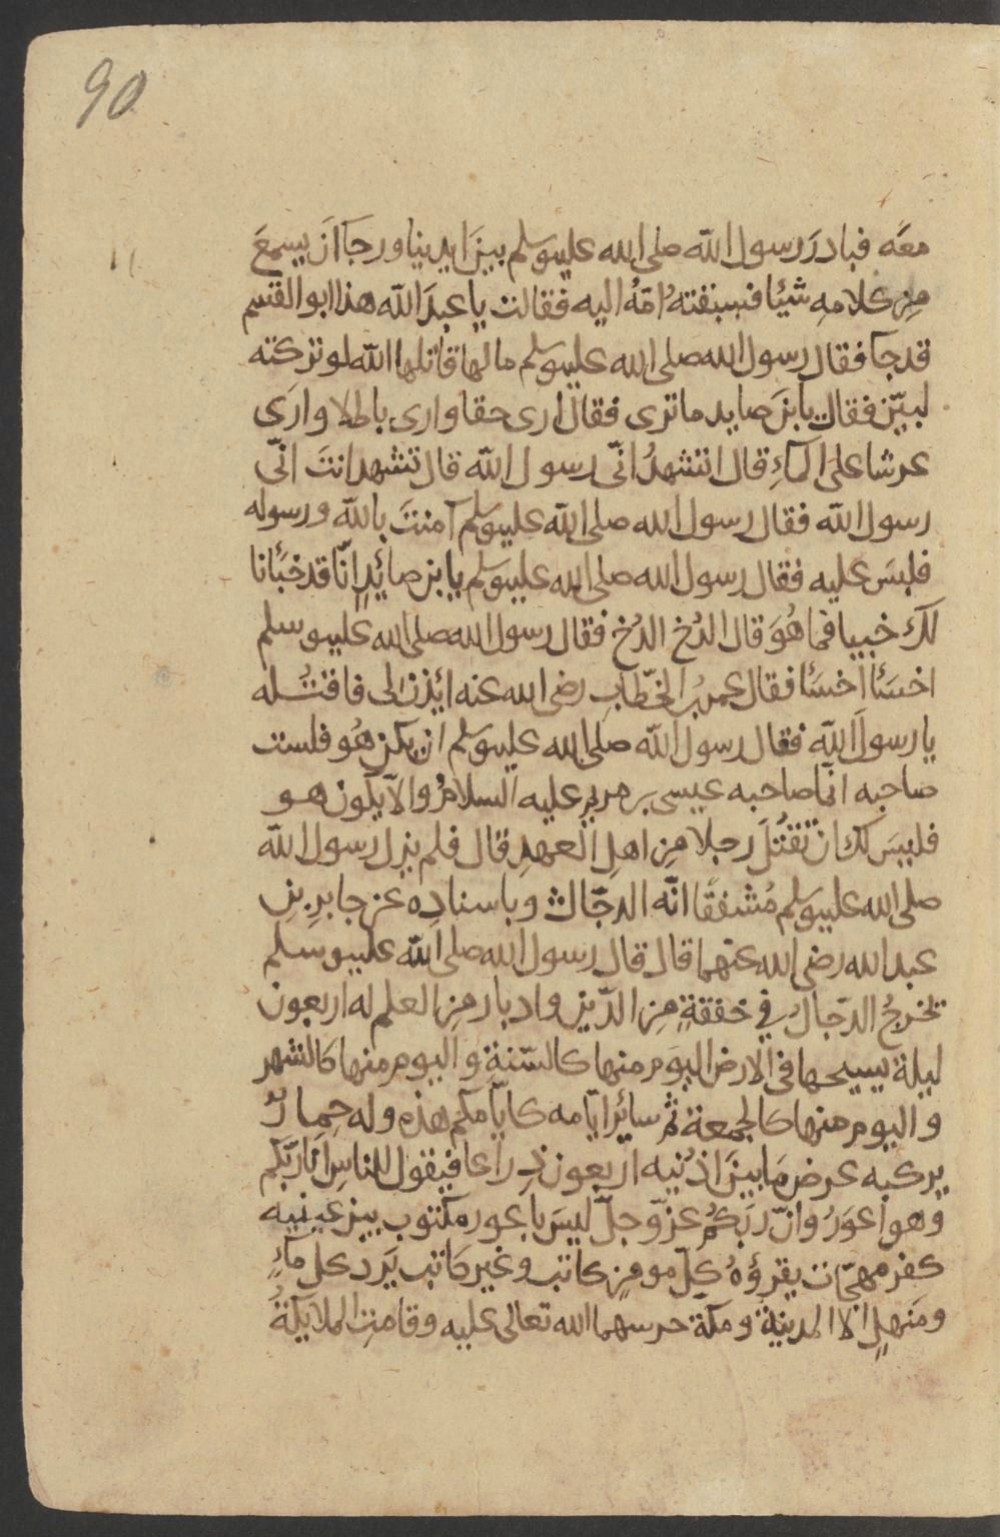 90
معه فبادر رسول الله صلى الله عليه وسلم بين ايدينا ورجا ان يسمع
من كلامه شيئا فسبقته امّه اليه فقالت يا عبد الله هذا ابو القسم
قد جآ فقال رسول الله صلى الله عليه وسلم ما لها قاتلها الله لو تركته
لبيّن فقال يا بن صايد ما ترى فقال ارى حقا وارى باطلا وارى
عرشا على المآء قال اتشهد انّى رسول الله قال تشهد انت انّى
رسول الله فقال رسول الله صلى الله عليه وسلم آمنت بالله ورسوله
فلبس عليه فقال رسول الله صلى الله عليه وسلم يا بن صائد انّا قد خبأنا
لك خبيا فما هو قال الدخ الدخ فقال رسول الله صلى الله عليه وسلم
اخسئا اخسئا فقال عمر بن الخطّاب رضى الله عنه ائذن لى فاقتله
يا رسول الله فقال رسول الله صلى الله عليه وسلم ان يكن هو فلست
صاحبه انّما صاحبه عيسى بن مريم عليه السلام والّا يكون هو
فليس لك ان تقتل رجلا من اهل العهد قال فلم يزل رسول الله
صلى الله عليه وسلم مشفقا انّه الدجّال وباسناده عن جابر بن
عبد الله رضى الله عنهما قال قال رسول الله صلى الله عليه وسلم
تخرج الدجّال في خفقة من الدّين وادبار من العلم له اربعون
ليلة يسيحها فى الارض اليوم منها كالسّنة واليوم منها كالشهر
واليوم منها كالجمعة ثم سائر ايّامه كايّامكم هذه وله حمار
يركبه عرض ما بين اذنيه اربعون ذراعا فيقول للناس انا ربّكم
وهو اعور وانّ ربكم عزّ وجلّ ليس باعور مكتوب بين عينيه
كفر مهجّات يقرؤه كل مومن كاتب وغير كاتب يرد كل مآء
ومنهل الا المدينة ومكة حرسهما الله تعالى عليه وقامت الملايكة